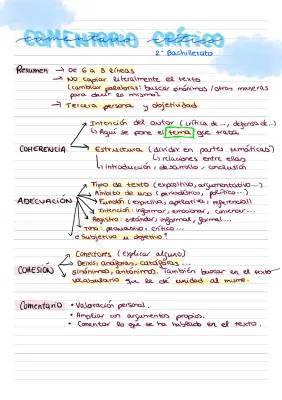 comentario crítico
COMENTARIO CRÍTICO
2º Bachillerato
Resumen → De 6 a 8 líneas
→ No copiar literalmente el texto
(cambiar palabras: buscar sinónimos / otras maneras
para decir lo mismo)
→ Tercera persona y objetividad
COHERENCIA
Intención del autor (crítica de..., defensa de...)
↳ Aquí se pone el tema que trata
Estructura (dividir en partes temáticas)
↳ relaciones entre ellas
↳ introducción - desarrollo - conclusión
ADECUACIÓN
Tipo de texto (expositivo, argumentativo...)
Ámbito de uso (periodístico, político...)
Función (expresiva, apelativa, referencial)
Intención: informar, emocionar, convencer...
Registro: estándar, informal, formal...
Tono: persuasivo, crítico...
¿Subjetivo u objetivo?
COHESIÓN
Conectores (explicar alguno)
Deixis: anáforas, catáforas...
sinónimos, antónimos. También buscar en el texto
vocabulario que le dé unidad al mismo.
Comentario
• Valoración personal.
• Ampliar con argumentos propios.
• Comentar lo que se ha hablado en el texto.